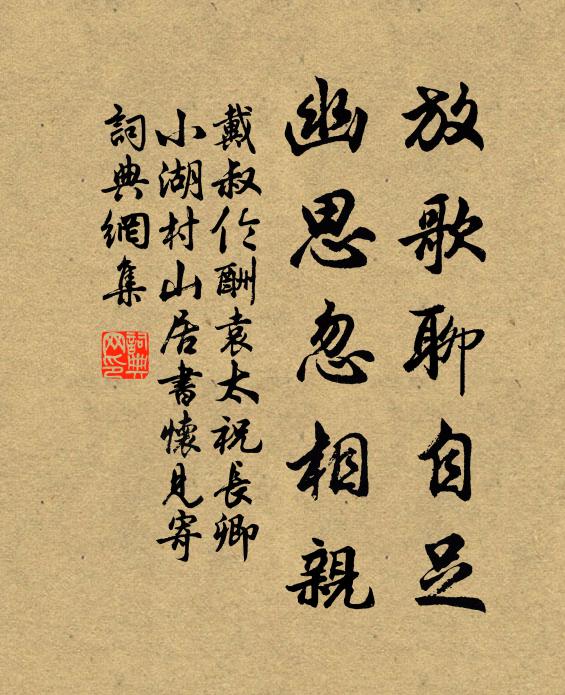 放歌聊自足
幽思忽相親
戴叔伦酬袁太祝長卿
小湖村山居書懷見寄
詞典網集
詞典
网印